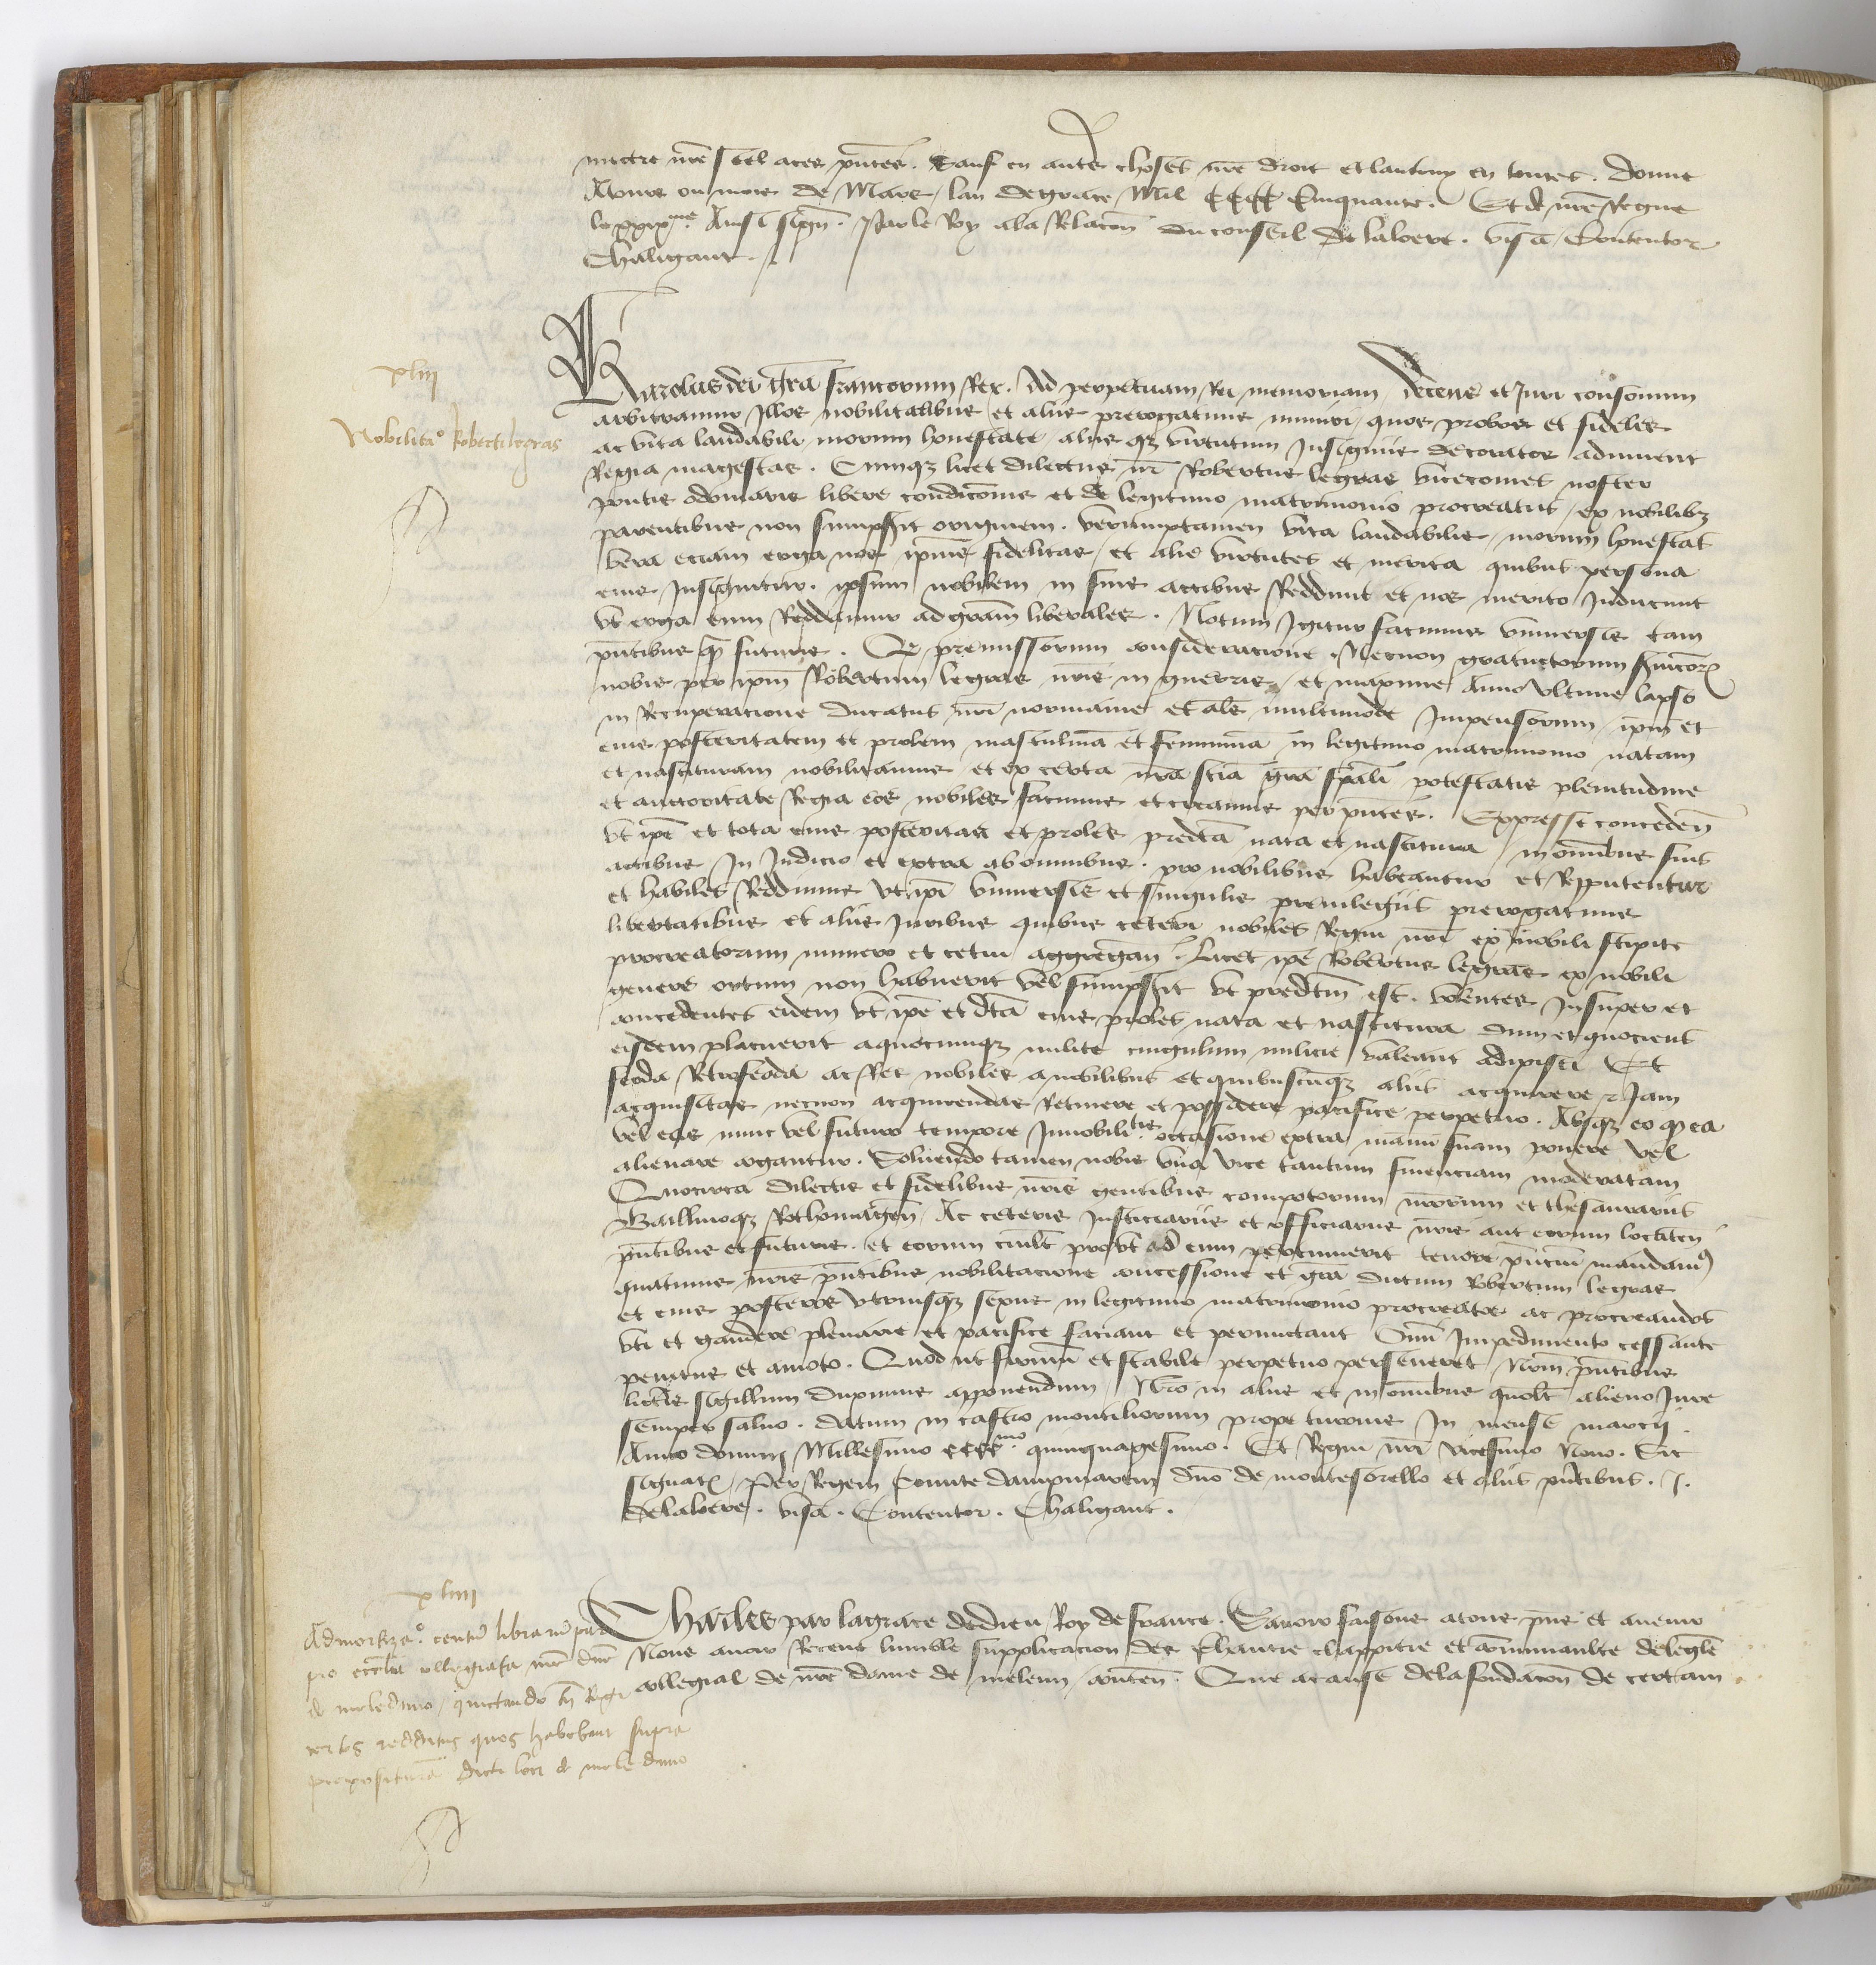 mectre nre seel a ces pntes. Sauf en autres choses nre droit et lautruy en toutes. Donne
A tours ou mois de Mars lan de grace Mil CCCC Cinquante. Et de nre Regne
le xxixme. Ainsi sign. Par le Roy a la Relacon du conseil De laloere. visa Contentor
Chaligaut.
xliii
Nobilitaco Roberti legras
Karolus dei gra francorum Rex. Ad perpetuam Rei memoriam Decens et Juri consonum
arbitramur Illos nobilitatibus et aliis prerogativis muniri quos probos et fideles
ac vita laudabili morum honestate aliisqz virtutum Insigniis decoratos adinvenit
Regia magestas. Cumqz licet dilectus nr Robertus legras vicecomes noster
pontis audomari libere condicionis et de legitimo matrimonio procreatus ex nobilibz
parentibus non sumpserit originem. verumptamen vita laudabilis morum honestas
vera eciam erga nos ipsius fidelitas et alie virtutes et merita quibus persona
eius Insignitur. ipsum nobilem in suis actibus Reddunt et nos merito Inducunt
vt erga eum Reddamur ad gram liberales. Notum Igitur facimus vniversis tam
pntibus qm futuris. Qd premissorum consideracione Necnon gratuitorum servicor
nobis per ipm Robertum legras nris in guerris et maxime Anno vltimo lapso
in Recuperacione ducatus nri normanie et als multimode Impensorum ipm et
eius posteritatem et prolem masculina et feminina in legitimo matrimonio natam
et nascituram nobilitamus et ex certa nra scia gra spali potestatis plenitudine
et auctoritate Regia eos nobiles facimus et creamus per pntes. Expresse conceden
vt ipe et tota eius posteritas et proles predca nata et nascitura in omibus suis
actibus In Judicio et extra ab omnibus pro nobilibus habeantur et Repputentur
et habiles Reddimus vt ipi vniversis et singulis privilegiis prerogativis
libertatibus et aliis Juribus quibus ceteri nobiles Regni nri ex nobili stipite
procreatorum numero et cetui aggregan. licet ipe Robertus legras ex nobili
genere ortum non habuerit vel sumpserit vt predctm est. volentes Insuper et
concedentes eidem vt ipe et dca eius proles nata et nascitura dum et quociens
eisdem placuerit a quocumqz milite cingulum milicie valeant adipisci Et
feoda Retrofeoda ac Res nobiles a nobilibus et quibuscuqz aliis acquirere et Jam
acquisitas necnon acquirendas Retinere et possidere pacifice perpetuo. Absqz eo qd ea
vel eas nunc vel futuro tempore Innobilitatis occasione extra manu suam ponere vel
alienare cogantur. Solvendo tamen nobis vna vice tantum financiam moderatam
Quocirca dilectis et fidelibus nris gentibus compotorum nrorum et thesaurariis
Baillivoqz Rothomagen Ac ceteris Justiciariis et officiariis nris aut eorum locaten
pntibus et futuris. et eorum cuilt prout ad eum pertinuerit tenore pncium mandam
quatinus nris pntibus nobilitacione concessione et gra dictum Robertum legras
et eius posteros vtriusqz sexus in legitimo matrimonio procreatos ac procreandos
vti et gaudere plenarie et pacifice faciant et permictant Omi Impedimento cessante
penitus et amoto. Quod ut firmu et stabile perpetuo perseveret Nrm pntibus
litteris sigillum duximus apponendum Nro in aliis et in omibus quolt alieno Jure
semper salvo. Datum in castro montiliorum prope turonis In mense marcii
Anno domini Millesimo CCCCmo quinquagesimo. Et Regni nri vicesimo Nono. Sic
signat Per Regem Comite dampmartin dno de montesorello et aliis pntibus. J.
delaloere. visa. Contentor. Chaligaut.
xliiii
Admortizaco. centu libraru par
pro ecclia collegiata nre dne
de meleduno quictando dno Regi
certos redditus quos habebant supra
preposituram dicti loci de meleduno
Charles par la grace de dieu Roy de france. Savoir faisons a tous pns et avenir
Nous avoir Receu lumble supplicacion des Chantre chappitre et communaulte de legle
collegial de nre dame de meleun conten Que a cause de la fondacon de certain